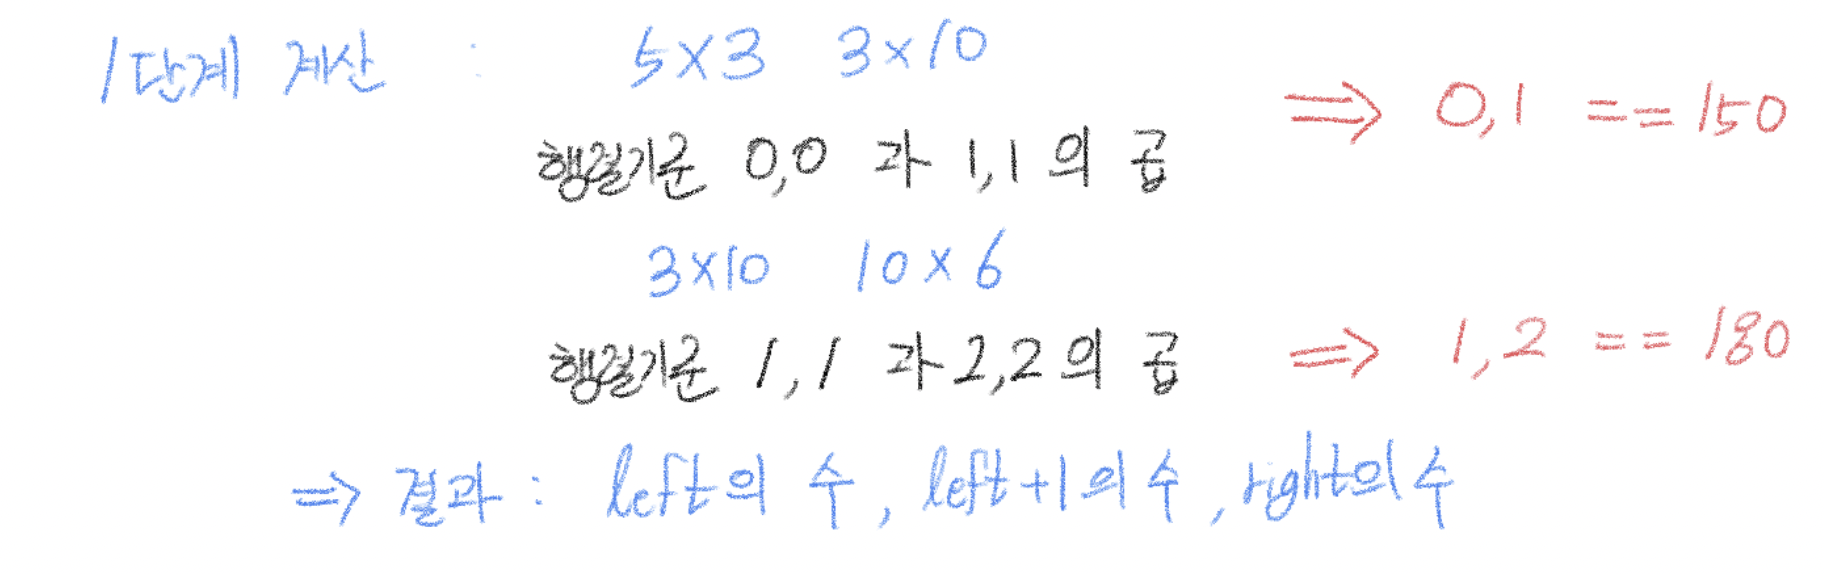 1단계 계산 : 5×3 3×10
⇒ 0,1 == 150
행렬기준 0,0 과 1,1 의 곱
3×10 10×6
행렬기준 1,1 과 2,2 의 곱
⇒ 1,2 == 180
⇒ 결과 : left의 수, left+1의 수, right의 수